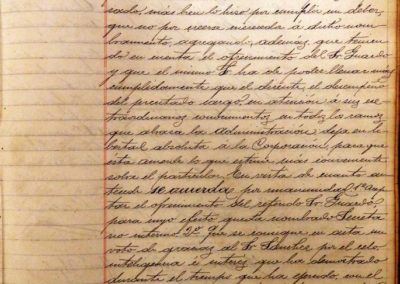 más bien lo hizo por cumplir un deber,
que no por creerse merecida á dicho nom-
bramiento, agregando, además, que tenien-
do en cuenta el ofrecimiento del Sr Guardo
y que el mismo Sr ha de poder llenar más
cumplidamente que el dicente, el desempeño
del precitado cargo, en atencion á sus ex-
traordinarios conocimientos en todos los ramos
que abraza la Administracion deja en li-
bertad absoluta á la Corporacion, para que
esta acuerde lo que estime más conveniente
sobre el particular. En vista de cuanto an-
tecede se acuerda por unanimidad 1º Acep-
tar el ofrecimiento del referido Sr Guardo,
para cuyo efecto queda nombrado Secreta
rio interino. 2º Que se consigne en acta un
voto de gracias al Sr Sanchez por el celo
inteligencia é interés que ha demostrado
durante el tiempo que ha ejercido, con el